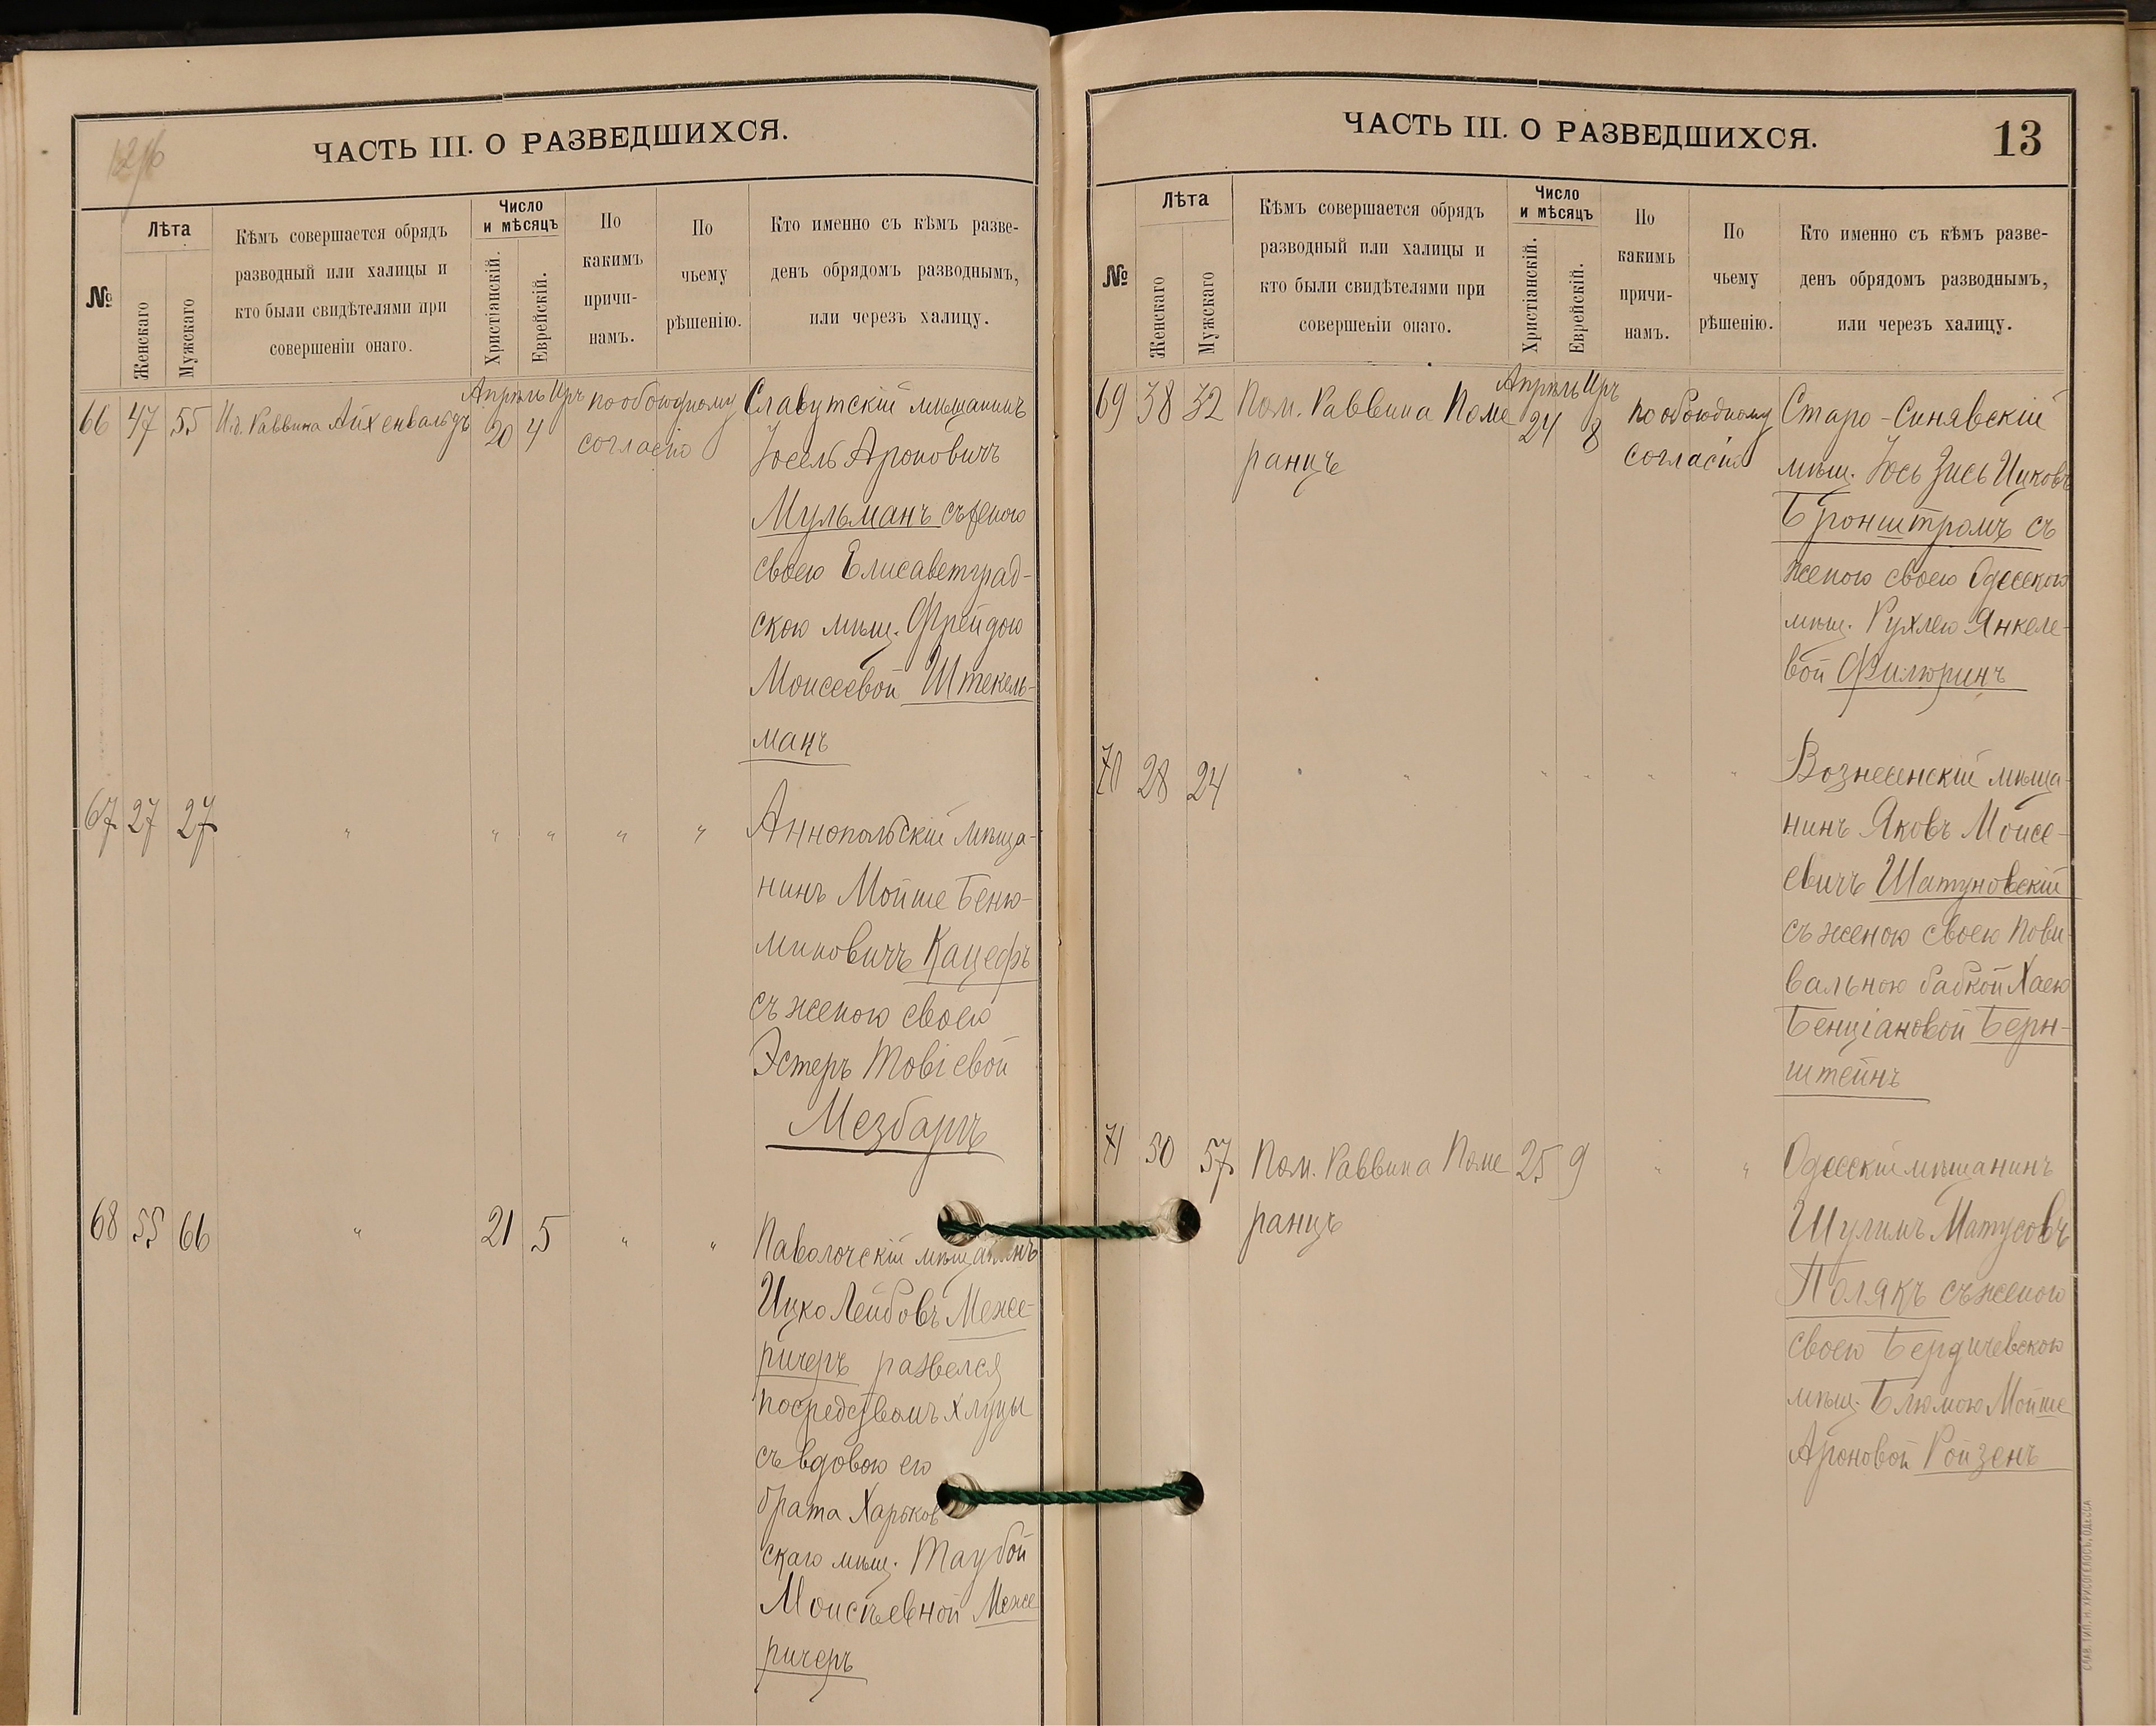 ЧАСТЬ III. О РАЗВЕДШИХСЯ.
№
Лѣта
Женскаго
Мужскаго
Кѣмъ совершается обрядъ
разводный или халицы и
кто были свидѣтелями при
совершеніи онаго.
Число
и мѣсяцъ
Христіанскій.
Еврейскій.
По
какимъ
причи-
намъ.
По
чьему
рѣшенію.
Кто именно съ кѣмъ разве-
денъ обрядомъ разводнымъ,
или черезъ халицу.
66 47 55 И.д. Раввина Айхенвальдъ
Апрѣль Иръ
20 4
по обоюдному
согласію
Славутскій мѣщанинъ
Іосель Ароновичъ
Мульманъ съ женою
своею Елисаветград-
скою мѣщ. Фрейдою
Моисеевой Штекель-
манъ
67 27 27 " " " " "
Аннопольскій мѣща-
нинъ Мойше Беню-
миновичъ Кацефъ
съ женою своею
Эстеръ Товіевой
Мезбаръ
68 55 66 " 21 5 " "
Паволочскій мѣщанинъ
Ицко Лейбовъ Меже-
ричеръ развелся
посредствомъ хлицы
съ вдовою его
брата Харьков
скаго мѣщ. Таубой
Моисѣевной Меже
ричеръ
ЧАСТЬ III. О РАЗВЕДШИХСЯ.
13
№
Лѣта
Женскаго
Мужскаго
Кѣмъ совершается обрядъ
разводный или халицы и
кто были свидѣтелями при
совершеніи онаго.
Число
и мѣсяцъ
Христіанскій.
Еврейскій.
По
какимъ
причи-
намъ.
По
чьему
рѣшенію.
Кто именно съ кѣмъ разве-
денъ обрядомъ разводнымъ,
или черезъ халицу.
69 38 32 Пом. Раввина Поме
ранцъ
Апрѣль Иръ
24 8
по обоюдному
согласію
Старо-Синявскій
мѣщ. Іось Зись Ицковъ
Бронштромъ съ
женою своею Одесскою
мѣщ. Рухлею Янкеле-
вой Филюринъ
70 28 24 " " " " " "
Вознесенскій мѣща-
нинъ Яковъ Моисе-
евичъ Шатуновскій
съ женою своею пови-
вальною бабкой Хаею
Бенціановой Берн-
штейнъ
71 50 57 Пом. Раввина Поме
ранцъ
25 9 " "
Одесскій мѣщанинъ
Шулимъ Матусовъ
Полякъ съ женою
своею Бердичевскою
мѣщ. Блюмою Мойше
Ароновой Ройзенъ
СЛАВ. ТИП. Н. ХРИСОГЕЛОСЪ, ОДЕССА